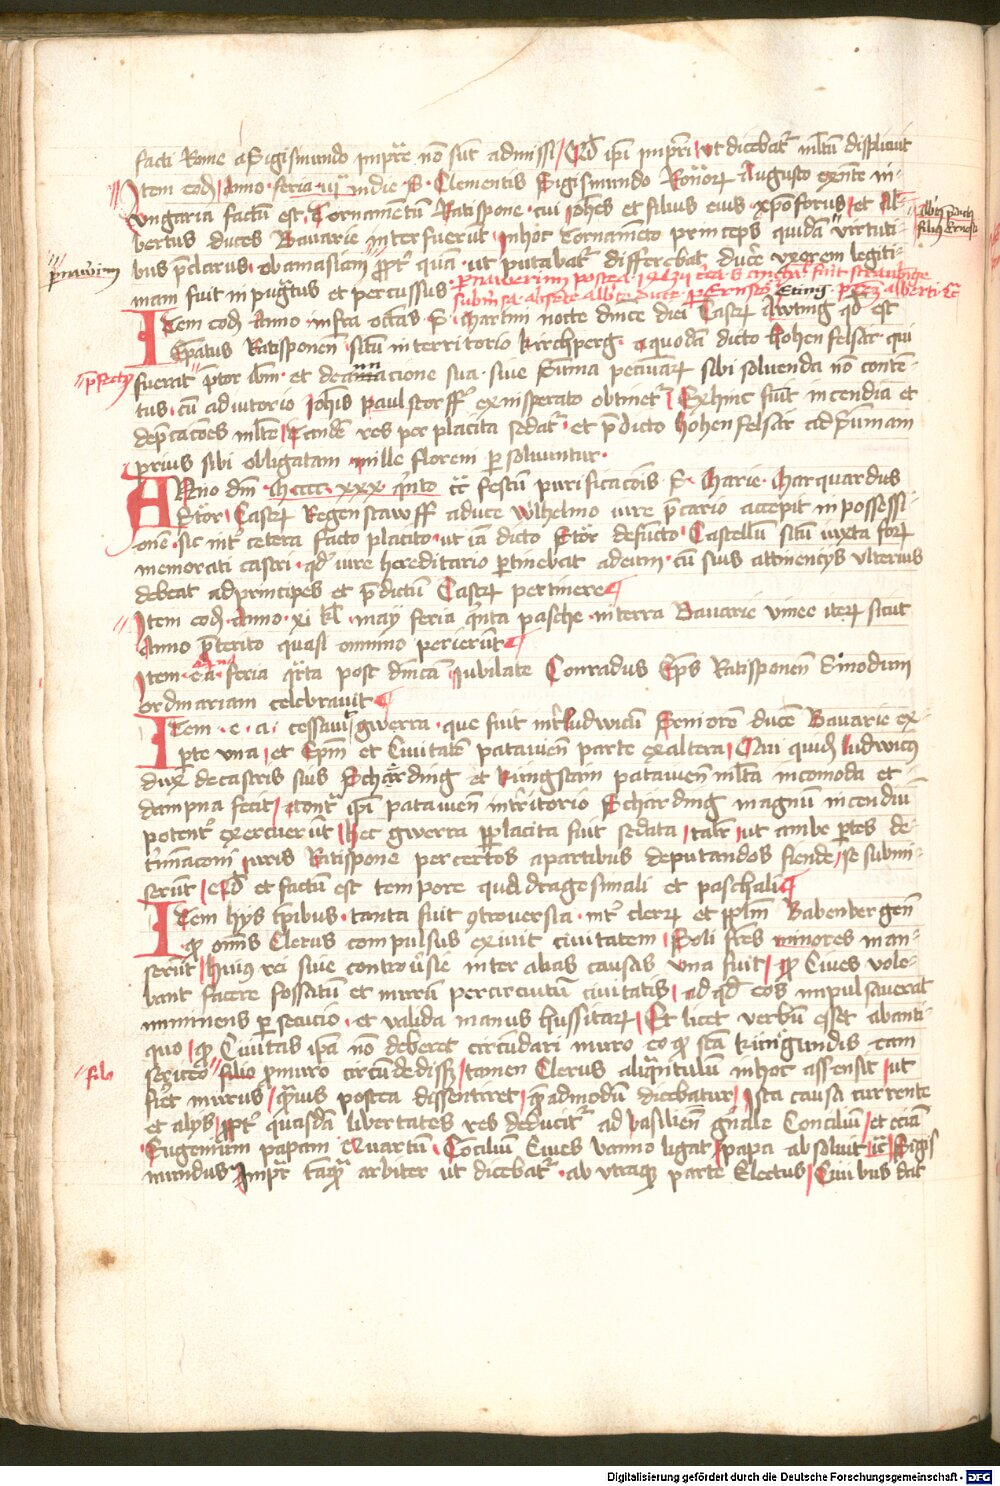 facti Rome a Sigismundo impr̄e nō sūt admissi / Qd̄ ip̄i impr̄i ut dicebat᷑ ml̄tū displicuit
Item eod̄ Anno feria iiij in die S. Clementis Sigismundo Romōꝝ Augusto exn̄te in
Vngaria factū est Tornamentū Ratispone cui Joh̄es et filius eius xp̄oforus et Al-
bertus duces Bauarie interfuerūt in hoc Tornamēto princeps quidā virtuti-
bus p̄clarus ob amasiam ꝓpt᷑ quā ut putabat᷑ differebat ducē vxorem legiti-
mam fuit inpug̃tus et percussus
Item eod̄ Anno infra octās S. Martini nocte diei Castꝝ Awting qd̄ est
Ep̄atus Ratisponen̄ sitū in territorio kirchperg a quodā dicto Hohenfelsār qui
fuerat p̄tor ib̄m et de sua siue sūma pecuniaꝝ sibi soluenda nō conte-
tus cū adiutorio Joh̄is Paulstorff ex insperato obtinet᷑ Exhinc fiūt incendia et
dep̄dacōes ml̄te Tandē res per placita sedat᷑ et p̄dicto hohenfelsār ad sūmam
prius sibi obligatam mille floreni ꝑsoluuntur
Anno dnī Mcccc xxx q̄nto c̄c̄ festū purificacōis S. Marie Marquardus
Castꝝ Regenstawff a duce Wilhelmo iure p̄cario accepit in possessi-
onē sic int᷑ cetera facto placito ut iā dicto defūcto Castellū sitū iuxta foꝝ
memorati castri qd̄ iure hereditario ꝑtinebat ad eum cū suis attinencijs vlterius
debeat ad principes et p̄dictū Castꝝ pertinere
Item eod̄ Anno xi kl̄ maij feria q̄nta pasche in terra Bauarie vinee iteꝝ sicut
Anno p̄terito quasi omnino perierūt
Item e. a. feria q̄rta post dn̄icā Jubilate Conradus Ep̄s Ratisponen̄ Sinodum
ordinariam celebrauit
Item e. a. cessauit gwerra que fuit int᷑ Ludwicū Seniorē ducē Bauarie ex
ꝑte vna et Ep̄m et Ciuitatē patauien̄ parte ex altera Qui quidē Ludwicus
dux de castris suis Schārding et kūngstain patauien̄ ml̄ta incomoda et
dampna fecit Cont᷑ ip̄i patauien̄ in t᷑ritorio Schārding magnū incendiū
potent᷑ exercuerūt Hec gwerra ꝑ placita fuit sedata talit᷑ ut ambe ꝑtes de-
t᷑minacōni iuris Ratispone per certos a partibus deputandos fiende se submi-
serūt / Qd̄ et factū est tempore quadragesimali et paschali
Item hijs tp̄ibus tanta fuit ꝯtrouersia int᷑ cleꝝ et ppl̄m Babenbergen̄
ꝙ om̄is Clerus compulsus exiuit ciuitatem Soli fr̄es minores man-
serūt Huius rei siue controūsie inter alias causas vna fuit / ꝙ Ciues vole-
bant facere fossatū et murū per circuitū ciuitatis ad qd̄ eos impulsauerat
imminens ꝑsecucio et valida manus hussitaꝝ Et licet verbū esset ab anti-
quo ꝙ Ciuitas ip̄a nō deberet circūdari muro eo ꝙ sc̄a kūnigundis eam
sericeo filo ꝓ muro circūdedisset tamen Clerus aliq̄ntulum in hoc assensit ut
fiet murus q̄uis postea dissentiret q̄admodū dicebatur Ista causa currente
et alijs ꝓpt᷑ quasdā libertates res deducit᷑ ad basilien̄ gn̄ale Conciliū et eciā
Eugenium papam Quartū Conciliū Ciues banno ligat papa absoluit ꝛc̄ Sigis
mundus Impr̄ tamq̄ arbiter ut dicebat᷑ ab vtraq̄ parte Electus Ciuibus dat
filo
Digitalisierung gefördert durch die Deutsche Forschungsgemeinschaft - DFG